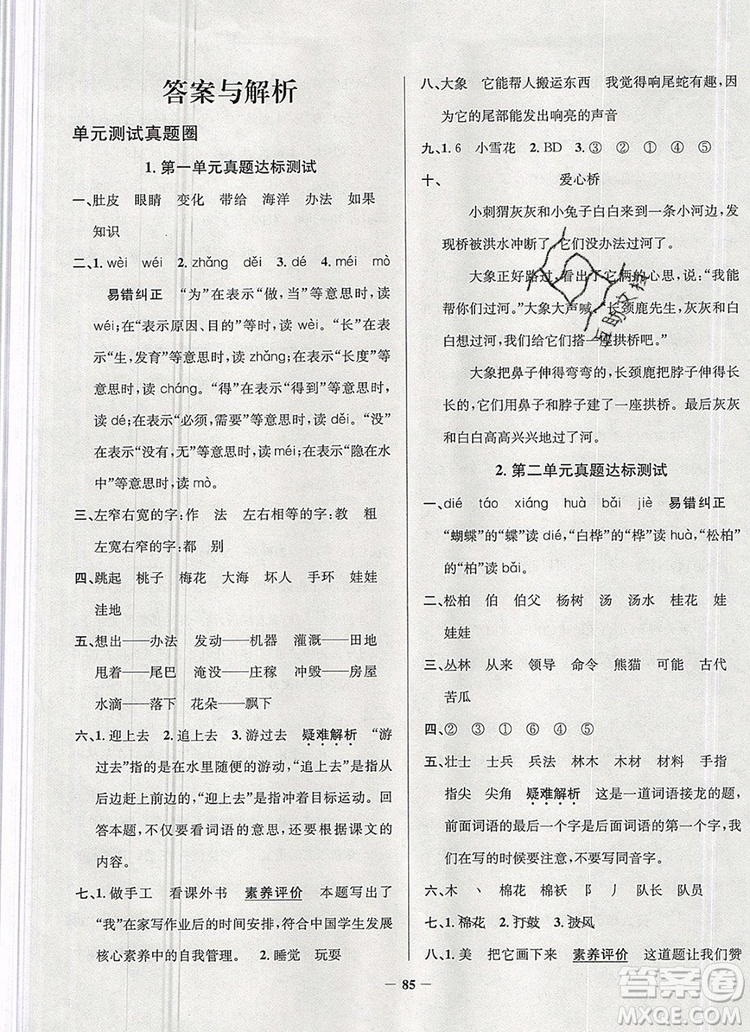 答案与解析
单元测试真题圈
1. 第一单元真题达标测试
一、肚皮 眼睛 变化 带给 海洋 办法 如果
知识
二、1. wèi wéi 2. zhǎng děi 4. méi mò
易错纠正 “为”在表示“做，当”等意思时，读
wéi；在表示原因、目的等时，读 wèi。“长”在表
示“生，发育”等意思时，读 zhǎng；在表示“长度”等
意思时，读 cháng。“得”在表示“得到”等意思时，
读 dé；在表示“必须，需要”等意思时，读 děi。“没”
在表示“没有，无”等意思时，读 méi；在表示“在水
中”等意思时，读 mò。
三、左窄右宽的字：作 法 左右相等的字：教 粗
左宽右窄的字：都 别
四、跳起 桃子 梅花 大海 坏人 手环 娃娃
洼地
五、想出——办法 发动——机器 灌溉——田地
甩着——尾巴 淹没——庄稼 冲毁——房屋
水滴——落下 花朵——飘下
六、1. 迎上去 2. 追上去 3. 游过去 疑难解析 “游
过去”是指在水里随便的游动，“追上去”是指从
后边赶上前边的，“迎上去”是指冲着目标运动。回
答本题，不仅要看词语的意思，还要根据课文的
内容。
七、1. 做手工 看课外书 素养评价 本题写出了
“我”在家写作业后的时间安排，符合中国学生发展
核心素养中的自我管理。 2. 睡觉 玩耍
八、大象 它能帮人搬运东西 我觉得响尾蛇有趣，因
为它的尾部能发出响亮的声音
九、1. 6 小雪花 2. BD 3. ③ ② ① ④
十、 爱心桥
小刺猬灰灰和小兔子白白来到小河边，发
现桥被洪水冲断了，它们没办法过河了。
大象正好路过，看出了它俩的心思，说：“我能
帮你们造一座桥。”大象大声喊：“长颈鹿先生，灰灰和
白白想过河，我们一起给它们搭一座拱桥吧。”
大象把鼻子伸得弯弯的，长颈鹿把脖子伸得长
长的，它们用鼻子和脖子搭建了一座拱桥。最后灰灰
和白白高高兴兴地过了河。
2. 第二单元真题达标测试
一、dié táo xiáng huà bǎi jiè 易错纠正
“蝴蝶”的“蝶”读 dié，“白桦”的“桦”读 huà，“松柏”
的“柏”读 bǎi。
二、松柏 伯 伯父 杨树 汤 汤水 桂花 娃
娃娃
三、丛林 从来 领导 命令 熊猫 可能 古代
苦瓜
四、② ③ ① ④ ⑥ ⑤
五、壮士 士兵 兵法 林木 木材 材料 手指
指尖 尖角 疑难解析 这是一道词语接龙的题，
前面词语的最后一个字是后面词语的第一个字，并且
在写的时候要注意字的书写。
六、木 丶 棉花 棉袄 阝 丿 队长 队员
七、1. 棉花 2. 打鼓 3. 披风
八、1. 美 把它画下来 素养评价 这道题让我们赞
85
答案圈
MXQE.COM